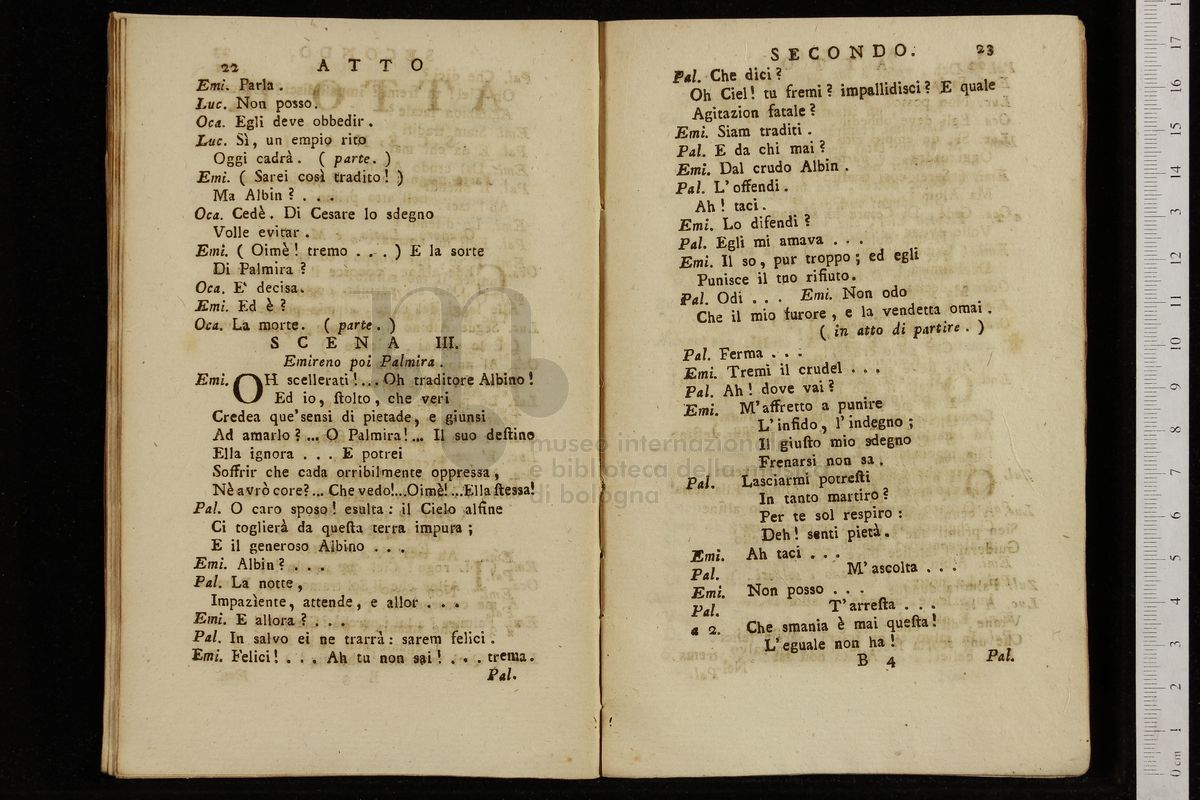 22 ATTO
Emi. Parla.
Luc. Non posso.
Oca. Egli deve obbedir.
Luc. Sì, un empio rito
Oggi cadrà. ( parte. )
Emi. ( Sarei così tradito! )
Ma Albin? . . .
Oca. Cedè. Di Cesare lo sdegno
Volle evitar.
Emi. ( Oimè! tremo . . . ) E la sorte
Di Palmira?
Oca. E' decisa.
Emi. Ed è?
Oca. La morte. ( parte. )
SCENA III.
Emireno poi Palmira.
Emi. OH scellerati!... Oh traditore Albino!
Ed io, ſtolto, che veri
Credea que' sensi di pietade, e giunsi
Ad amarlo?... O Palmira!... Il suo deſtino
Ella ignora . . . E potrei
Soffrir che cada orribilmente oppressa,
Nè avrò core?... Che vedo!...Oimè!...Ella ſtessa!
Pal. O caro sposo! esulta: il Cielo alfine
Ci toglierà da queſta terra impura;
E il generoso Albino . . .
Emi. Albin? . . .
Pal. La notte,
Impaziente, attende, e allor . . .
Emi. E allora? . . .
Pal. In salvo ei ne trarrà: sarem felici.
Emi. Felici! . . . Ah tu non sai! . . . trema.
Pal.
SECONDO. 23
Pal. Che dici?
Oh Ciel! tu fremi? impallidisci? E quale
Agitazion fatale?
Emi. Siam traditi.
Pal. E da chi mai?
Emi. Dal crudo Albin.
Pal. L'offendi.
Ah! taci.
Emi. Lo difendi?
Pal. Egli mi amava . . .
Emi. Il so, pur troppo; ed egli
Punisce il tuo rifiuto.
Pal. Odi . . . Emi. Non odo
Che il mio furore, e la vendetta omai.
( in atto di partire. )
Pal. Ferma . . .
Emi. Tremi il crudel . . .
Pal. Ah! dove vai?
Emi. M'affretto a punire
L'infido, l'indegno;
Il giuſto mio sdegno
Frenarsi non sa.
Pal. Lasciarmi potreſti
In tanto martiro?
Per te sol respiro:
Deh! senti pietà.
Emi. Ah taci . . .
Pal. M'ascolta . . .
Emi. Non posso . . .
Pal. T'arreſta . . .
a 2. Che smania è mai queſta!
L'eguale non ha!
B 4 Pal.
museo internazionale
e biblioteca della musica
di bologna
0 cm 1 2 3 4 5 6 7 8 9 10 11 12 13 14 15 16 17